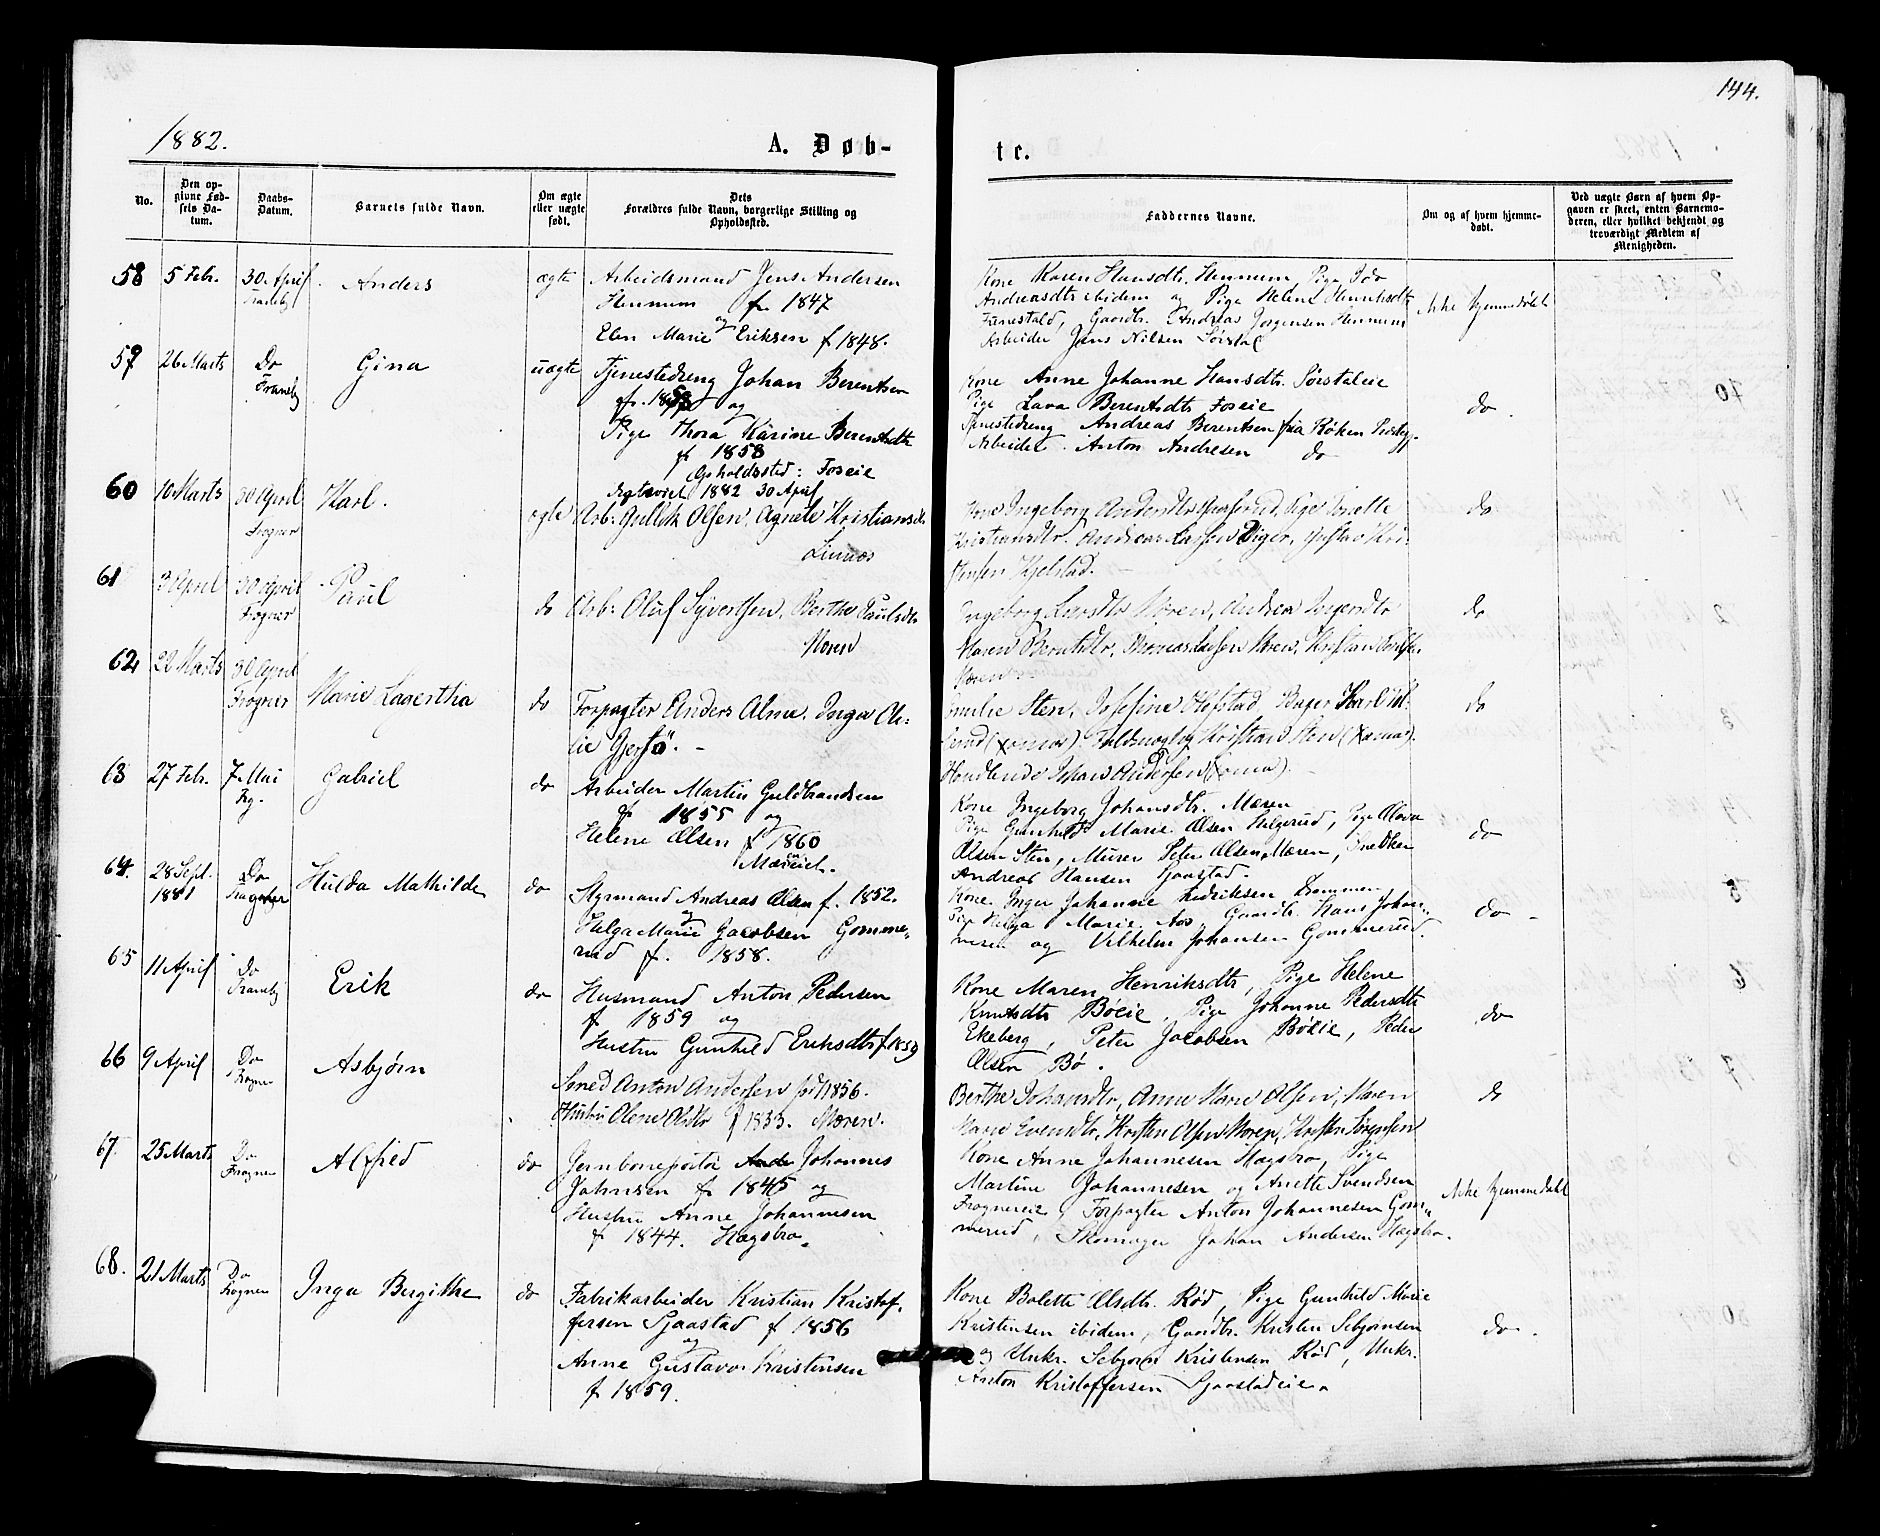 144.
1882.
A. Døb-
te.
No.
Den op-
givne Fød-
sels Da-
tum.
Daabs-
Datum.
Barnets fulde Navn.
Om ægte
eller uægte
født.
Dets
Forældres fulde Navn, borgerlige Stilling og
Opholdssted.
Faddernes Navne.
Om og af hvem hjemme-
døbt.
Ved uægte Børn af hvem Op-
gaven er skeet, enten Barnemo-
deren, eller hvilket bekjendt og
troværdigt Medlem af
Menigheden.
58
5 Febr.
30 April
Franeby
Anders
ægte
Arbeidsmand Jens Andersen
Hennum f. 1847
og
Elen Marie Eriksen f 1848.
Kone Karen Hansdtr. Hennum Pige Ida
Andreasdtr ibidem og Pige Helene Henriksdtr
Gaardbr. Andreas Jørgensen Hennum
Arbeider Jens Nilsen Sørstøl
Ikke hjemmedøbt
59
26 Marts
Do
Franeby
Gina
uægte
Tjenestedreng Johan Berentsen
og
Pige Thora Karine Berentsdtr
f 1858
Opholdssted: Foseie
1882 30 April
Kone Anne Johanne Hansdtr. Sørstøleie
Pige Lava Berentsdtr Foseie
Tjenestedreng Andreas Berentsen fra Røken Prstgj.
Arbeider Anton Andresen do
do.
60
10 Marts
30 April
Frogner
Karl.
ægte
Arb: Gullik Olsen, Agnete Kristiansdtr
Linnes
Kone Ingeborg Andersdtr Pige
Kristiansdtr. Andreas Larsen Gustav Kri-
stensen Kjelstad.
do
61
3 April
30 April
Frogner
Paul
do
Arb: Oluf Syvertsen, Berthe Paulsdtr
Noren
Ingeborg Larsdtr Noren,
Maren Berntsdtr, Thomas Larsen Noren, Kristian
Noren
do
62
22 Marts
30 April
Frogner
Marie Lagertha
do
Forpagter Anders Alme, Inga Ol-
lie Gjersø. -
Emilie Sten, Josefine Hofstad, Bager Karl
Kristian Sten
Handlende Johan Andersen
do
63
27 Febr.
7 Mai
Frg.
Gabriel
do
Arbeider Martin Guldbrandsen
f 1855 og
Helene Olsen f 1860
Mæreiet.
Kone Ingeborg Johansdtr. Mæren
Pige Gunhild Marie Olsen Helgerud, Pige Olava
Olsen Sten, Murer Peter Olsen Mæren, Snedker
Andreas Hansen Gjaastad.
do
64.
28 Sept.
1881
Do
Frogner
Hulda Mathilde
do
Styrmand Andreas Olsen f. 1852.
og
Helga Marie Jacobsen Gomme-
rud f. 1858.
Kone Inger Johanne Fredriksen Drammen
Pige Helga Marie Aas, Gaardbr. Hans Johan-
nesen og Vilhelm Johansen Gommerud.
do -
65
11 April
Do
Franeby
Erik
do
Husmand Anton Pedersen
f 1859 og
Hustru Gunhild Eriksdtr f 1859
Kone Maren Henriksdtr, Pige Helene
Knutsdtr Bøeie, Pige Johanne Pedersdtr
Ekeberg, Peter Jacobsen Bøeie, Peder
Olsen Bø.
do
66
9 April
Do
Frogner
Asbjørn
Smed Anton Andersen født 1856.
Hustru Olene Olsdtr f 1833. Mæren.
Berthe Johansdtr, Anne Marie Olsen, Maren
Marie Evensdtr, Kristen Olsen Noren, Kristen Sørensen
do
67.
25 Marts
Do
Frogner
Alfred
do
Jernbanepoitør Johannes
Johnsen f. 1845 og
Hustru Anne Johannesen
f 1844. Hægsbro.
Kone Anne Johannesen Hægsbro, Pige
Martine Johannesen og Anette Svendsen
Frognereie, Forpagter Anton Johannesen Gom-
merud, Skomager Johan Andersen Hægsbro.
Ikke hjemmedøbt
68.
21 Marts
Do
Frogner
Inga Bergithe
do
Fabrikarbeider Kristian Kristof-
fersen Gjaastad f 1856
og
Anne Gustava Kristensen
f 1859.
Kone Bolette Olsdtr. Rød, Pige Gunhild Marie
Kristensen ibidem, Gaardbr. Kristen Sebjørnsen
og Unkr. Sebjørn Kristensen Rød, Unkr.
Anton Kristoffersen Gjaastadeie.
do.